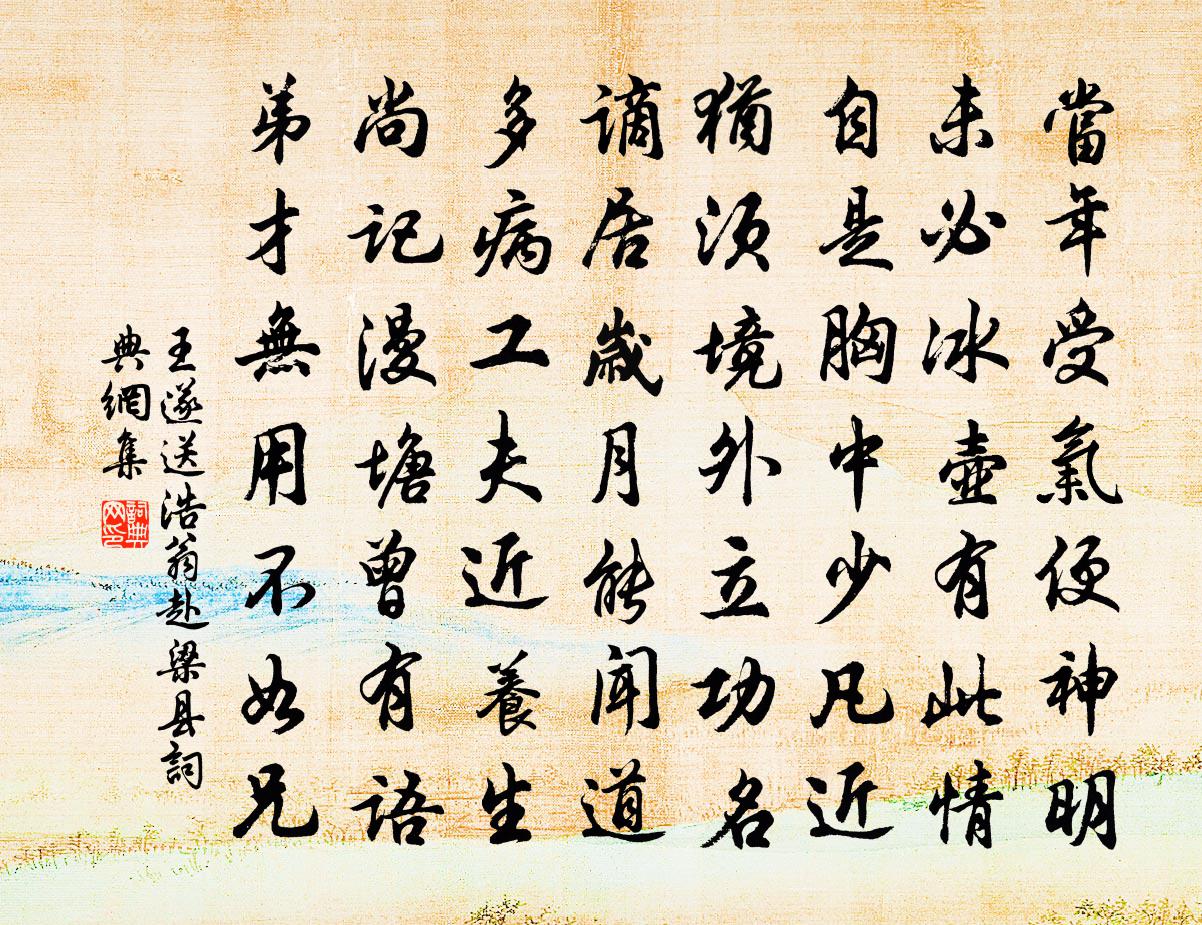 當年受氣便神明
未必冰壺有此情
自是胸中少凡近
猶須境外立功名
謫居歲月能聞道
多病工夫近養生
尚記漫塘曾有語
弟才無用不如兄
王遂送浩翁赴梁县詞
典網集
詞典
网印